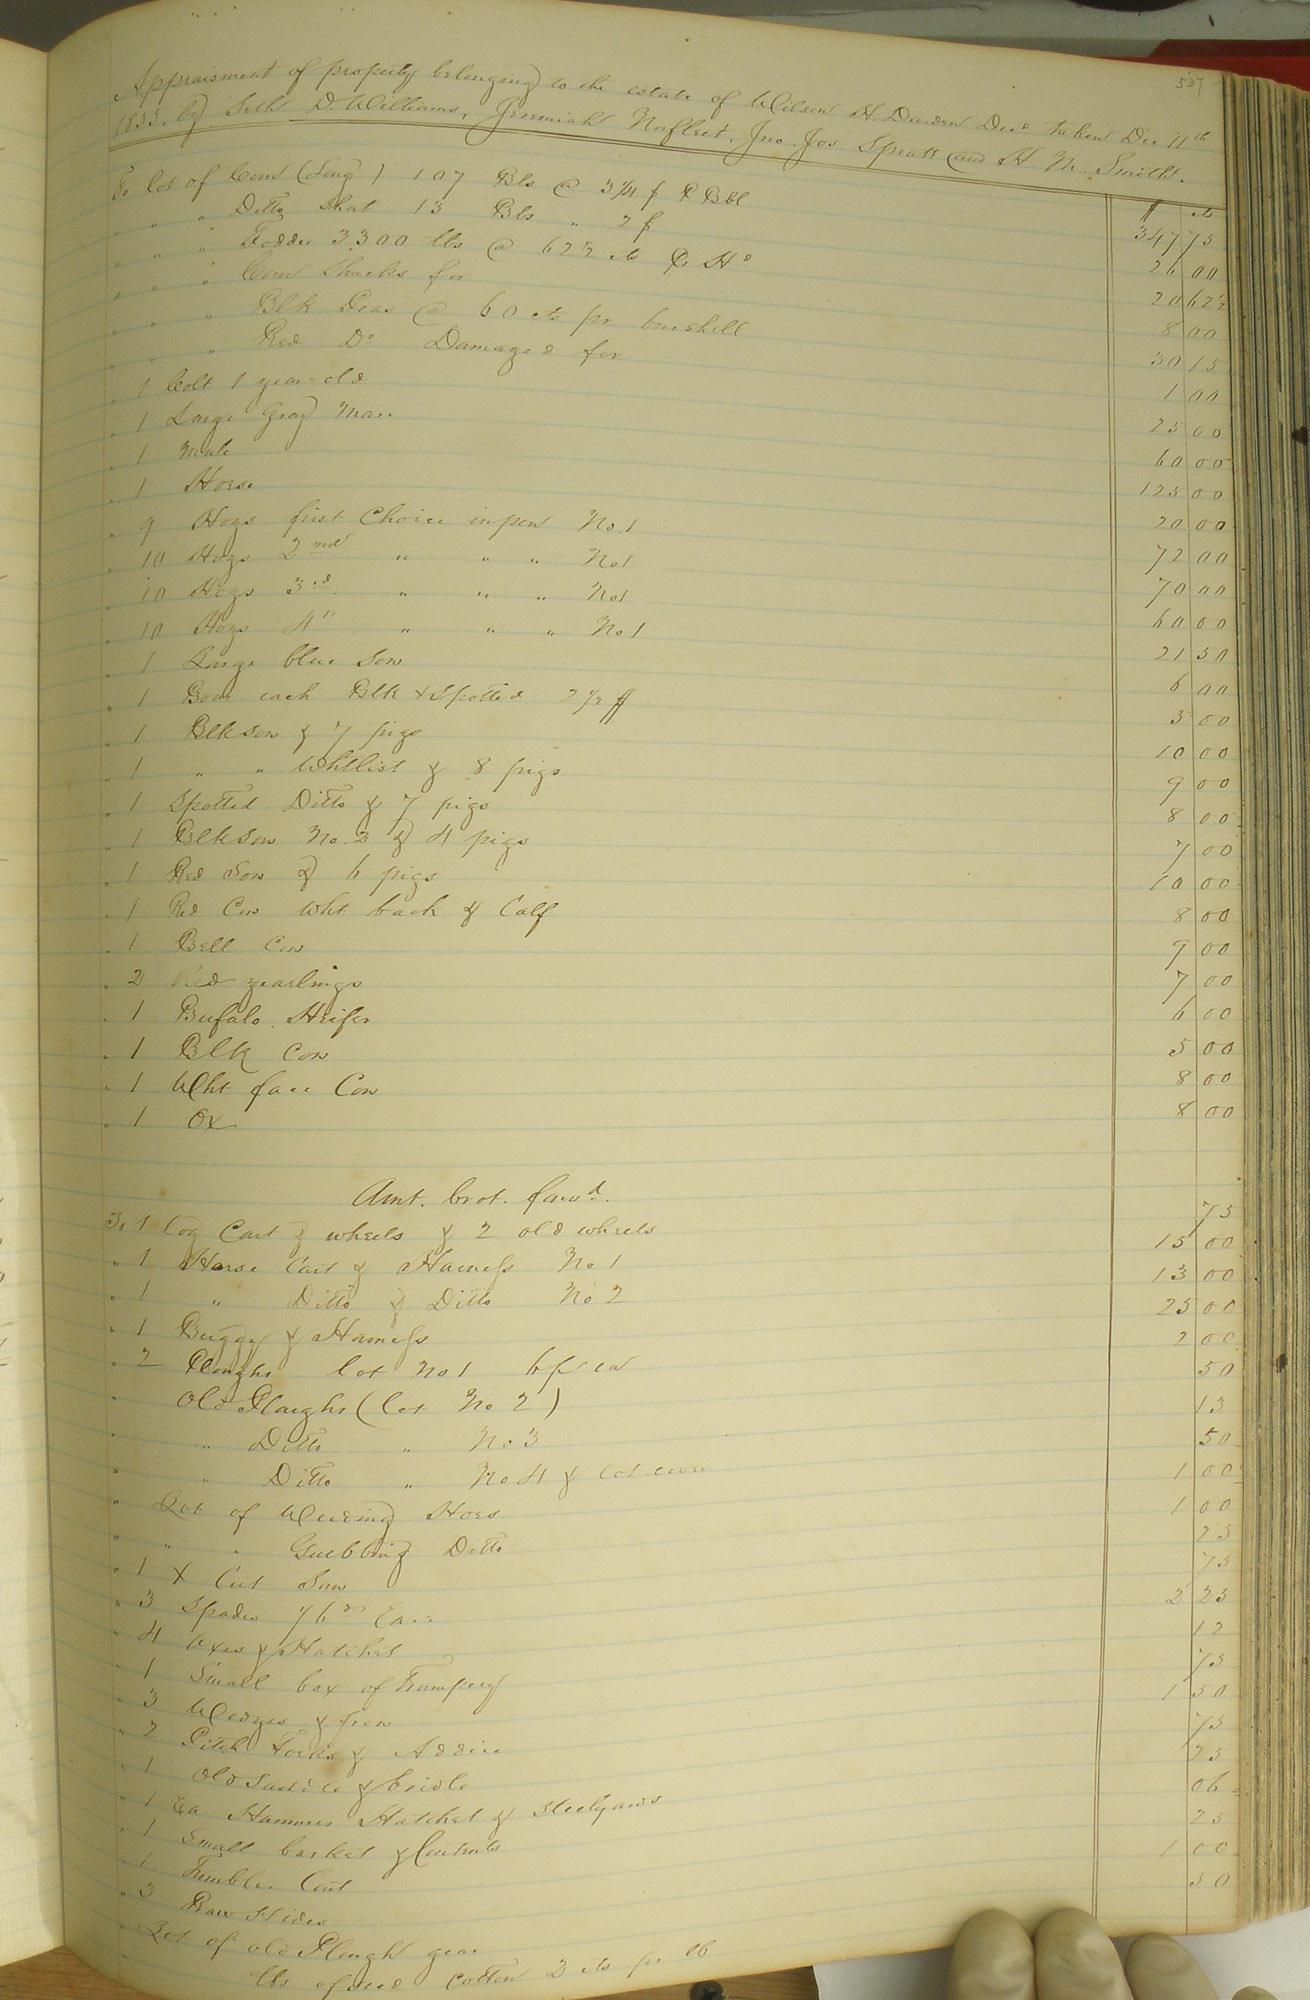 537
Appraisment of property belonging to the estate of Wilson H. Durden Decd taken Dec 11th
1855. by Seth D. Williams, Jeremiah Norfleet, Jno. Jos. Spratt and H. M. Smith.
$ cts
To lot of Corn (Long) 107 Bls @ 3 1/4 $ P Bbl 347 75
" " " Ditto Shat 13 Bls " 2 $ 26 00
" " " Fodder 3300 lbs @ 62 1/2 cts Pr Hd 20 62 1/2
" " " Corn Shucks for 8 00
" " " Blk Peas @ 60 cts pr bushell 30 15
" " " Red Do Damaged for 1 00
" 1 Colt 1 year old 25 00
" 1 Large Gray Mare 60 00
" 1 Mule 125 00
" 1 Horse 20 00
" 9 Hogs first Choice in pen No. 1 72 00
" 10 Hogs 2nd " " " No 1 70 00
" 10 Hogs 3rd " " " No 1 60 00
" 10 Hogs 4" " " " No 1 21 50
" 1 Large blue Sow 6 00
" 1 Boar each Blk & Spotted 2 1/2 $ 5 00
" 1 Blk sow & 7 pigs 10 00
" 1 " " Whtlist & 8 pigs 9 00
" 1 Spotted Ditto & 7 pigs 8 00
" 1 Blk Sow No. 2 & 4 pigs 7 00
" 1 Red Sow & 6 pigs 10 00
" 1 Red Cow Wht back & Calf 8 00
" 1 Bell Cow 9 00
" 2 Red yearlings 7 00
" 1 Bufalo Heifer 6 00
" 1 Blk Cow 5 00
" 1 Wht face Cow 8 00
" 1 Ox 8 00
Amt. brot. forwd.
To 1 log Cart & wheels & 2 old wheels 75
" 1 Horse Cart & Harness No 1 15 00
" 1 " Ditto & Ditto No 2 13 00
" 1 Buggy & Harness 25 00
" 2 Ploughs lot No 1 2 00
" Old Ploughs (lot No 2) 50
" " Ditto " No 3 13
" " Ditto " No 4 & lot 50
" Lot of Weeding Hoes 1 00
" " " Grubbing Ditto 1 00
" 1 X Cut Saw 25
" 3 Spades 75
" 4 Axes & Hatchet 2 25
" 1 Small box of Trumpery 12
" 3 Wedges & Iron 75
" 2 Pitch Forks & Addice 1 50
" 1 Old Saddle & bridle 75
" 1 Ea Hammer Hatchet & Steelyards 25
" 1 Small basket & Contents 06
" 1 Tumbler Cart 25
" 3 Raw Hides 1 00
" Lot of old Plough gear 50
lbs of seed cotton 2 cts pr lb